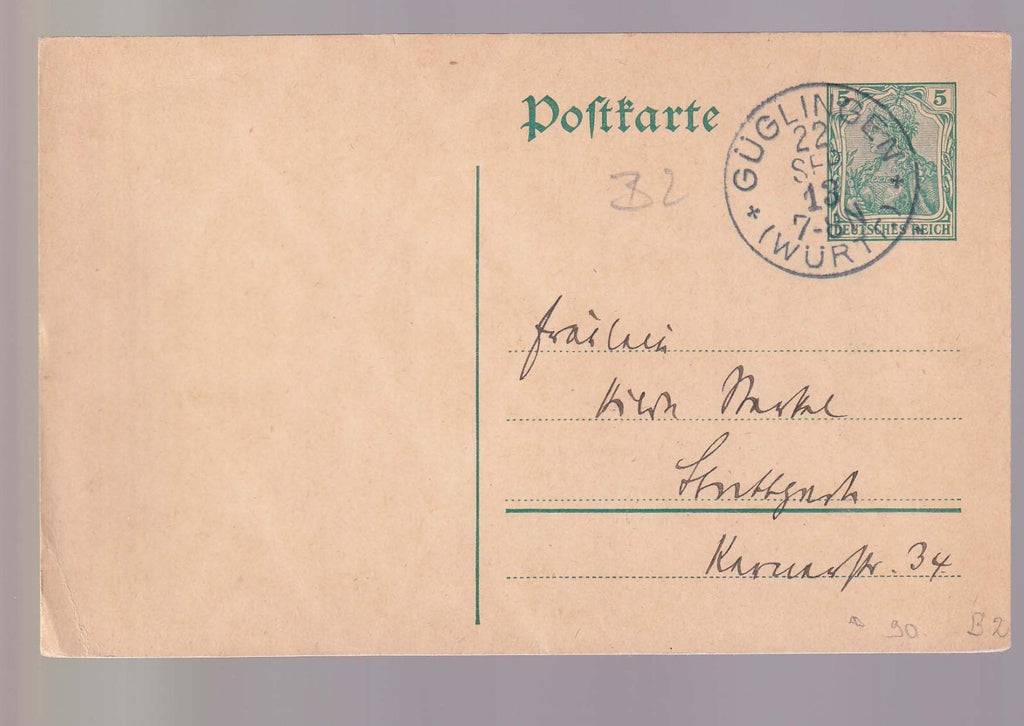 Postkarte
5 5
DEUTSCHES REICH
GÜGLINGEN
22
SEP
13
7-8 N
(WÜRTT.)
B2
Fräulein
Hilde Merkel
Stuttgart
Kernerstr. 34
90 B2